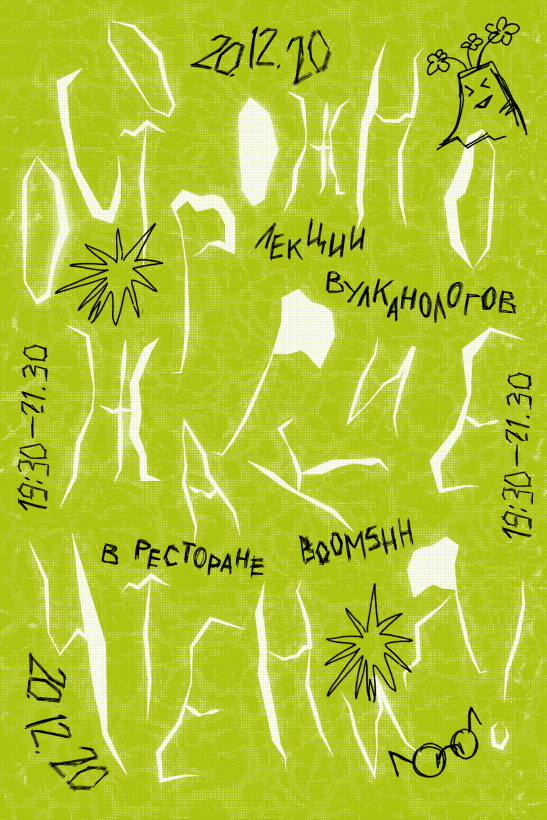 20.12.20
ОСТОРОЖНО
ЛЕКЦИИ
ВУЛКАНОЛОГОВ
19:30—21.30
19:30—21.30
ЖАРКИЕ
В РЕСТОРАНЕ BOOMSHH
ЧТЕНИЯ!
20.12.20